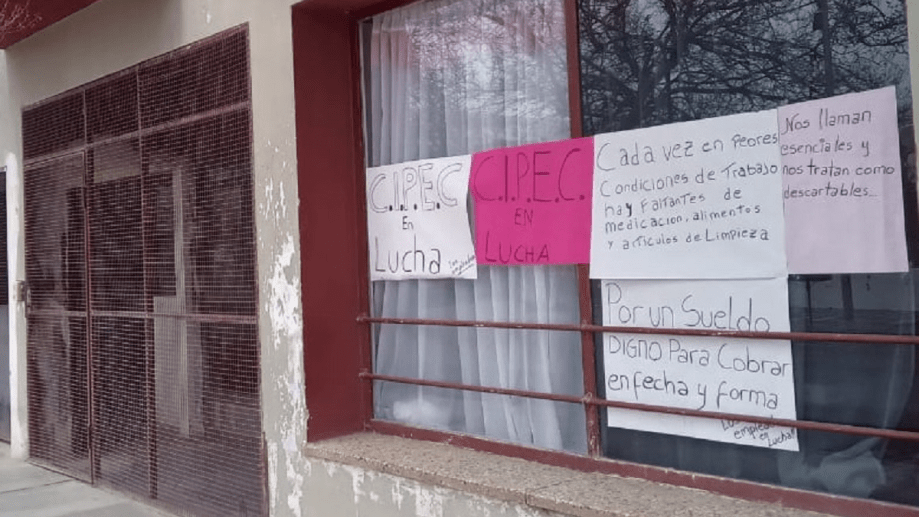 C.I.P.E.C
En
Lucha
Los empleados
C.I.P.E.C.
EN
LUCHA
Cada vez en Peores
Condiciones de Trabajo
hay Faltantes de
medicacion, alimentos
y articulos de Limpieza
Nos llaman
esenciales y
nos tratan como
descartables...
Por un Sueldo
DIGNO Para Cobrar
en fecha y forma
Los
empleados
en Lucha!!